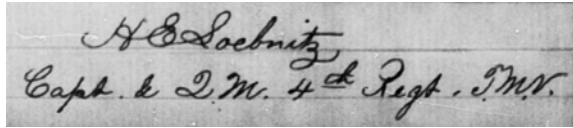 H E Loebnitz
Capt. & Q.M. 4th Regt. T.M.V.